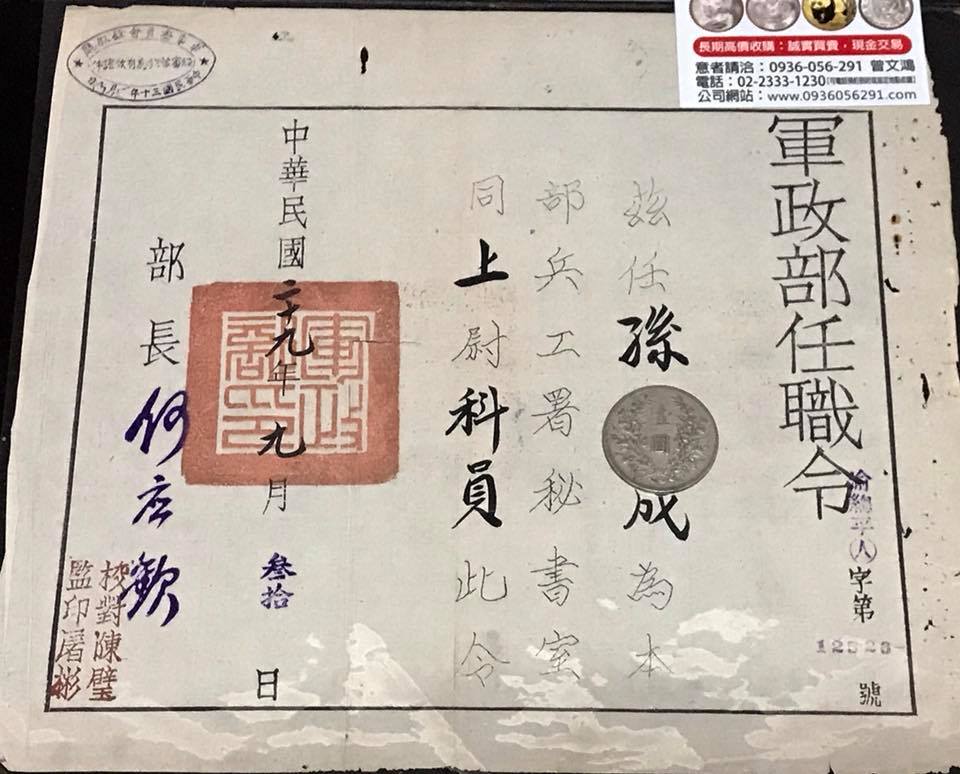 軍政部任職令
渝總平人字第
12323
號
茲任孫 成為本
部兵工署秘書室
同上尉科員此令
中華民國二十九年九月叁拾日
部長何应欽
校對陳璧
監印屠彬
軍政部印
壹圓
中華民國三十年 月 日
長期高價收購：誠實買賣，現金交易
意者請洽：0936-056-291 曾文鴻
電話：02-2333-1230
公司網站：www.0936056291.com